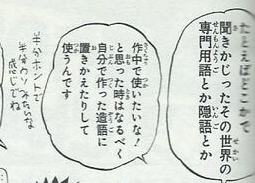 たとえばどこかで
聞きかじったその世界の
専門用語とか隠語とか
作中で使いたいな!
と思った時はなるべく
自分で作った造語に
置きかえたりして
使うんです
半分ホントで
半分ウソみたいな
感じでね